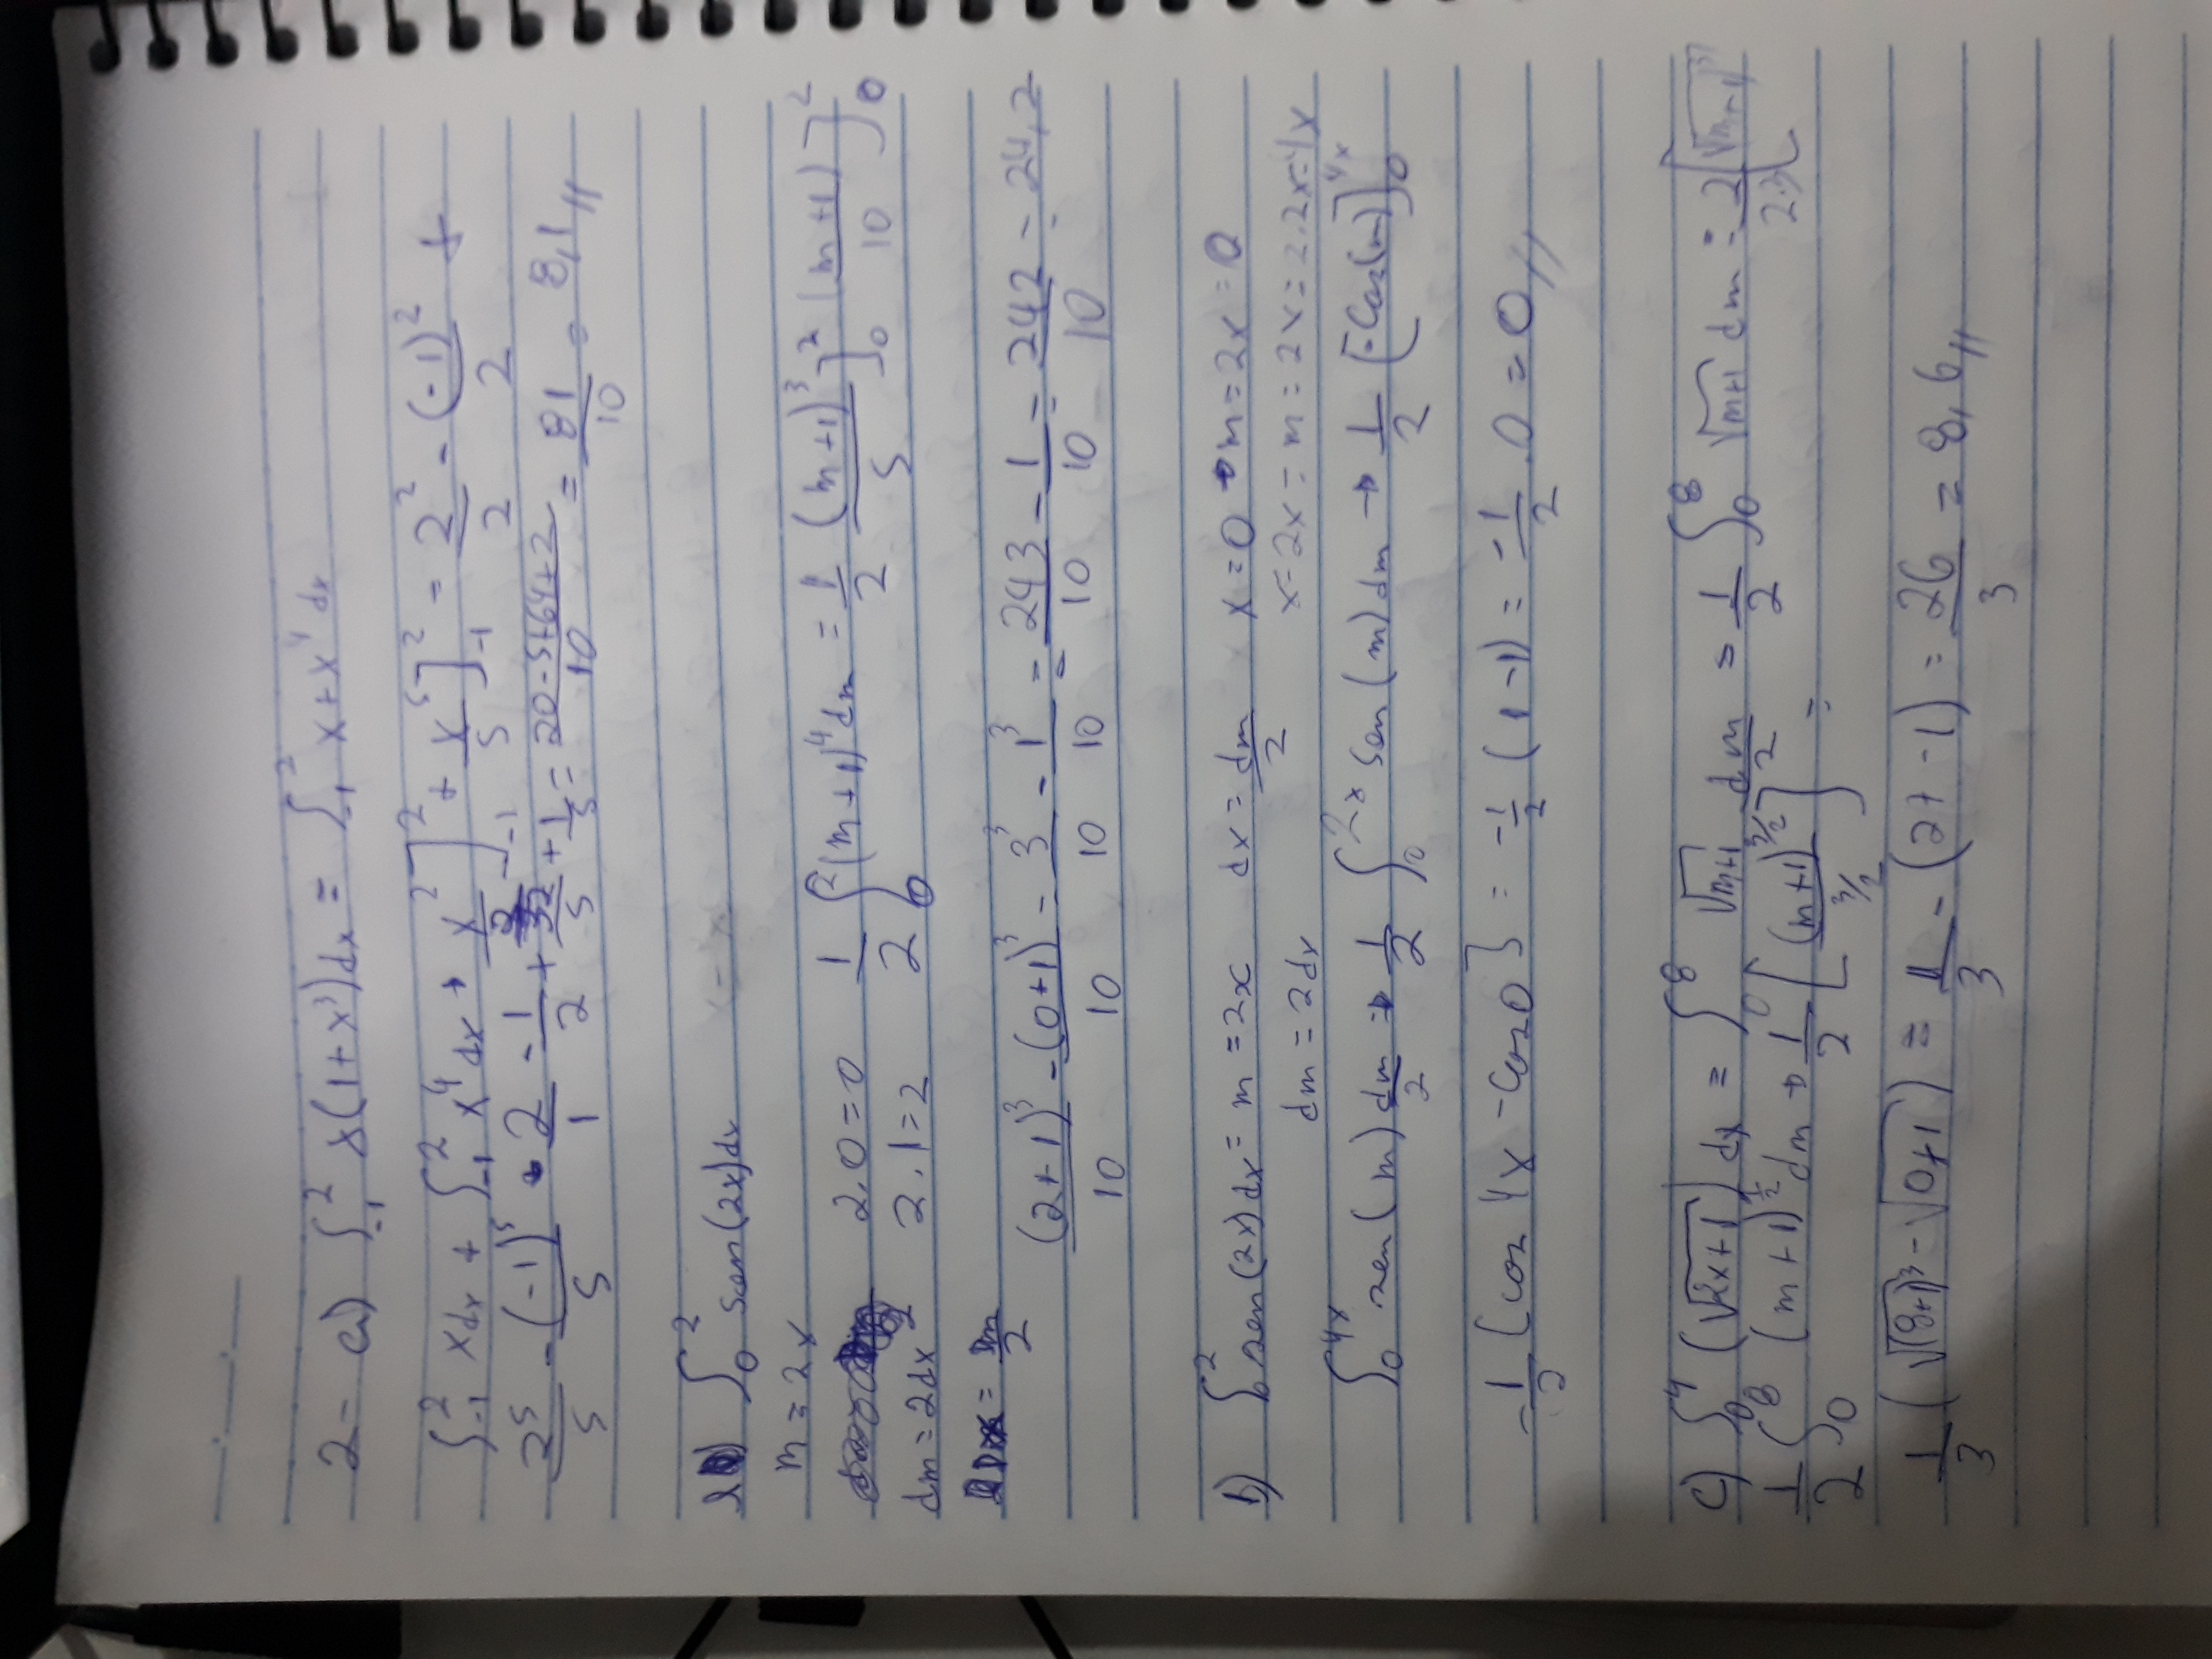 2- a) ∫₋₁² x(1+x³)dx = ∫₋₁² x+x⁴ dx
∫₋₁² xdx + ∫₋₁² x⁴dx → x²/2 ]₋₁² + x⁵/5 ]₋₁² = 2²/2 - (-1)²/2 +
2⁵/5 - (-1)⁵/5 • 2/1 - 1/2 + 32/5 + 1/5 = 20-5+64+2/10 = 81/10 = 8,1,,
∫₀² sen(2x)dx
m = 2x
2.0=0 1/2 ∫₀² (m+1)⁴dm = 1/2 (m+1)³/5 ]₀² (m+1)/10 ]₀²
dm = 2dx 2.1=2
Dx = Dm/2
(2+1)³/10 - (0+1)³/10 = 3³/10 - 1³/10 = 243/10 - 1/10 = 242/10 = 24,2
b) ∫₀² sen(2x)dx = m = 2x dx = dm/2 x=0 → m=2x=0
dm = 2dx x=2x = m = 2x = 2.2x=4x
∫₀⁴ˣ sen(m) dm/2 → 1/2 ∫₀²ˣ Sen(m)dm → 1/2 [-Cos(m)]₀⁴ˣ
-1/2 [cos 4x - Cos0] = -1/2 (1-1) = -1/2 .0 = 0,,
c) ∫₀⁴ (√2x+1) dx = ∫₀⁸ √m+1 dm/2 = 1/2 ∫₀⁸ √m+1 dm = 2/2.3 [√(m+1)³
1/2 ∫₀⁸ (m+1)^½ dm → 1/2 [(m+1)^3/2 / 3/2] =
1/3 (√(8+1)³ - √0+1) = 1/3 - (27-1) = 26/3 = 8,6,,